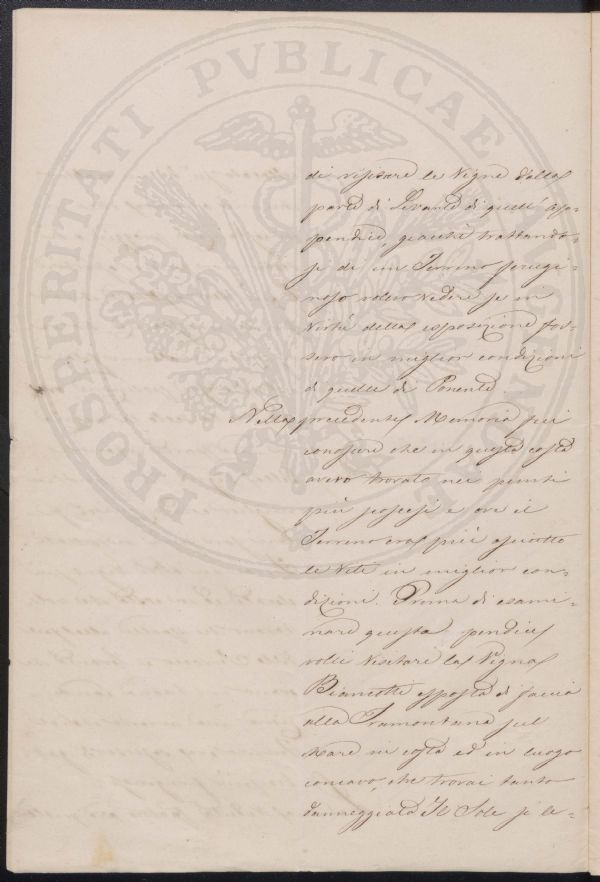 di visitare le Vigne dalla
parte di Levante di quell' Ap-
pendice, giacchè trattando-
si di un Terreno ferugi-
noso volevo vedere se in
virtù della esposizione fos-
sero in miglior condizioni
di quelle di Ponente.
Nella precedente Memoria feci
conoscere che in questa costa
avevo trovato nei punti
più scoscesi e ove il
Terreno era più asciutto
le Viti in miglior con-
dizioni. Prima di esami-
nare questa pendice
volli visitare la Vigna
Biancotti esposta di faccia
alla Tramontana sul
Mare in costa ed in luogo
concavo, che trovai tanto
danneggiata. Il Sole si le-